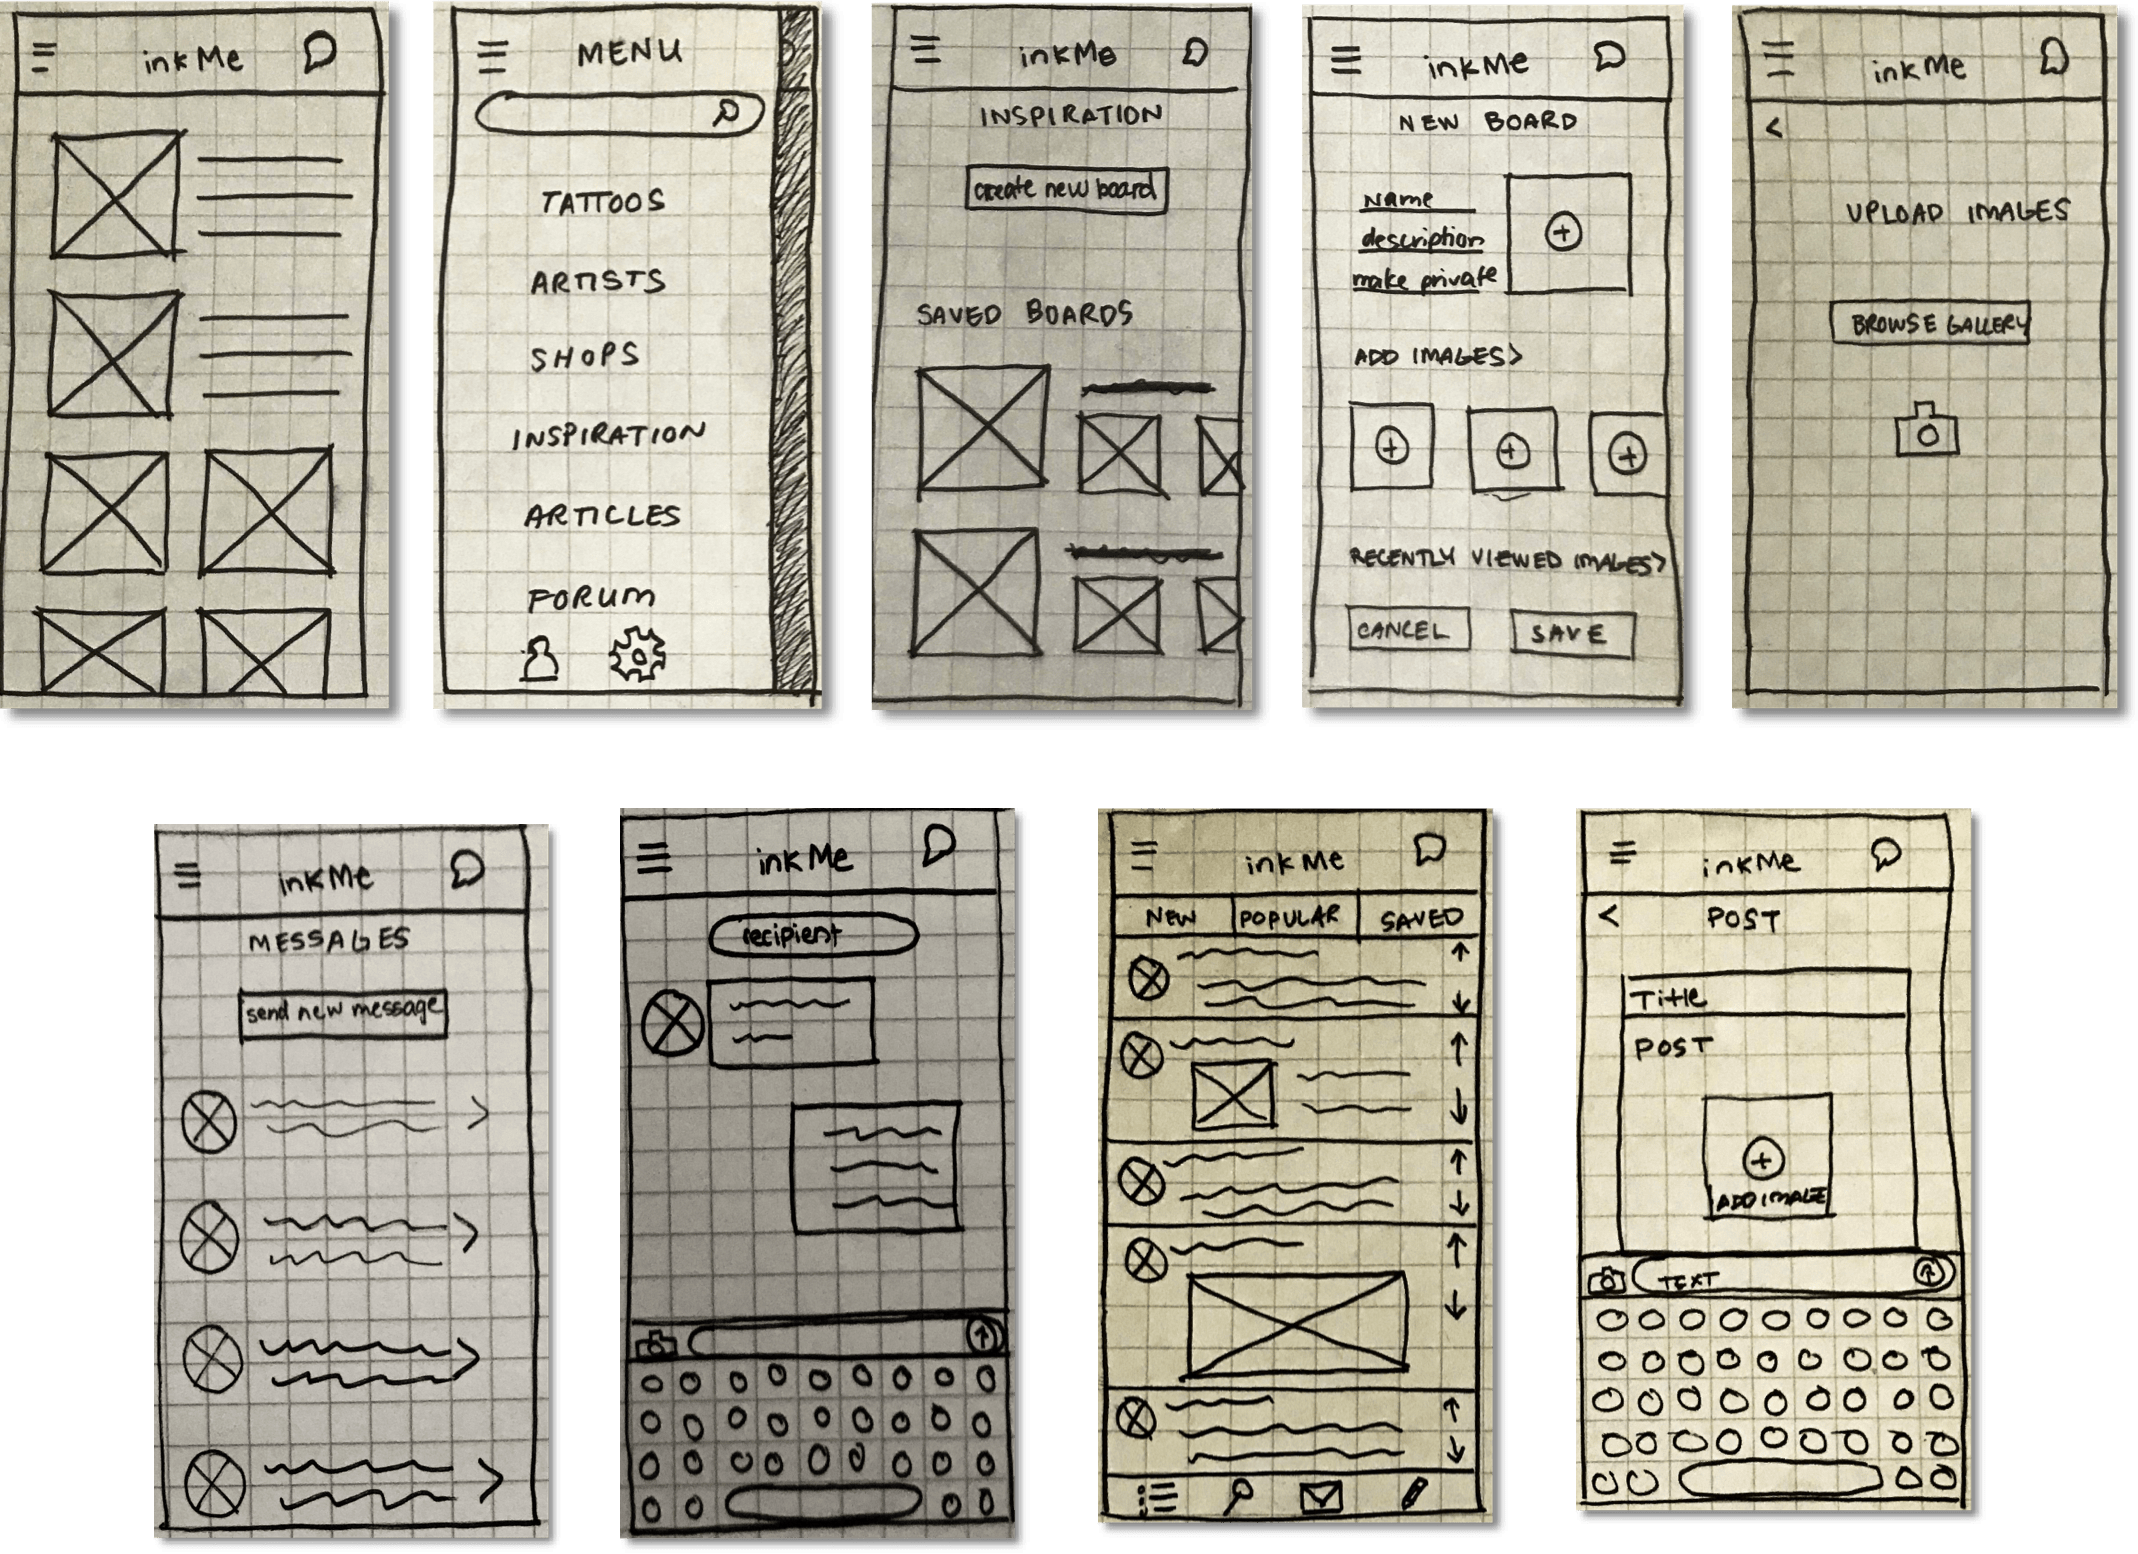 inkMe
MENU
TATTOOS
ARTISTS
SHOPS
INSPIRATION
ARTICLES
FORUM
inkMe
INSPIRATION
create new board
SAVED BOARDS
inkMe
NEW BOARD
Name
description
make private
ADD IMAGES>
RECENTLY VIEWED IMAGES>
CANCEL SAVE
inkMe
<
UPLOAD IMAGES
BROWSE GALLERY
inkMe
MESSAGES
send new message
inkMe
recipient
inkMe
NEW POPULAR SAVED
inkMe
< POST
Title
POST
ADD IMAGE
TEXT